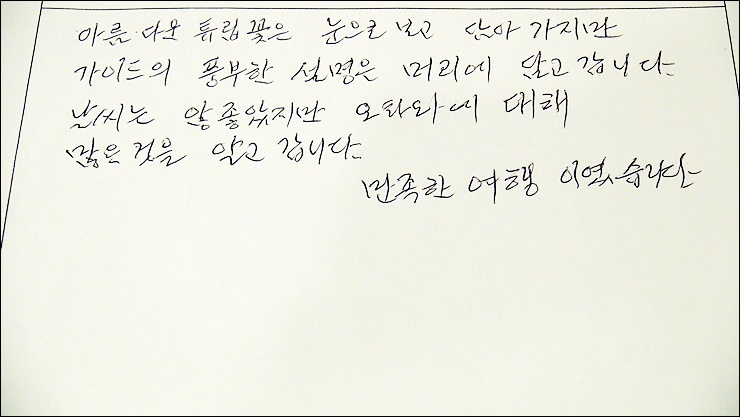 아름다운 튜립꽃은 눈으로 보고 담아 가지만
가이드의 풍부한 설명은 머리에 담고 갑니다
날씨는 않좋았지만 오타와에 대해
많은 것을 알고 갑니다.
만족한 여행 이였습니다